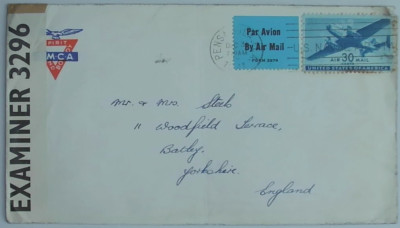 EXAMINER 3296
SPIRIT
MCA
Par Avion
By Air Mail
FORM 2978
U.S. N
30
AIR MAIL
UNITED STATES OF AMERICA
Mr. & Mrs. Stab
11 Woodfield Terrace,
Batley,
Yorkshire.
England